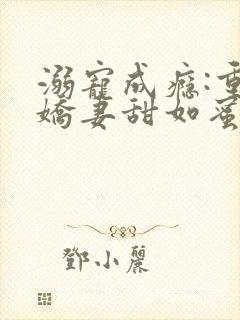 溺寵成癮:重
嬌妻甜如蜜
鄧小麗